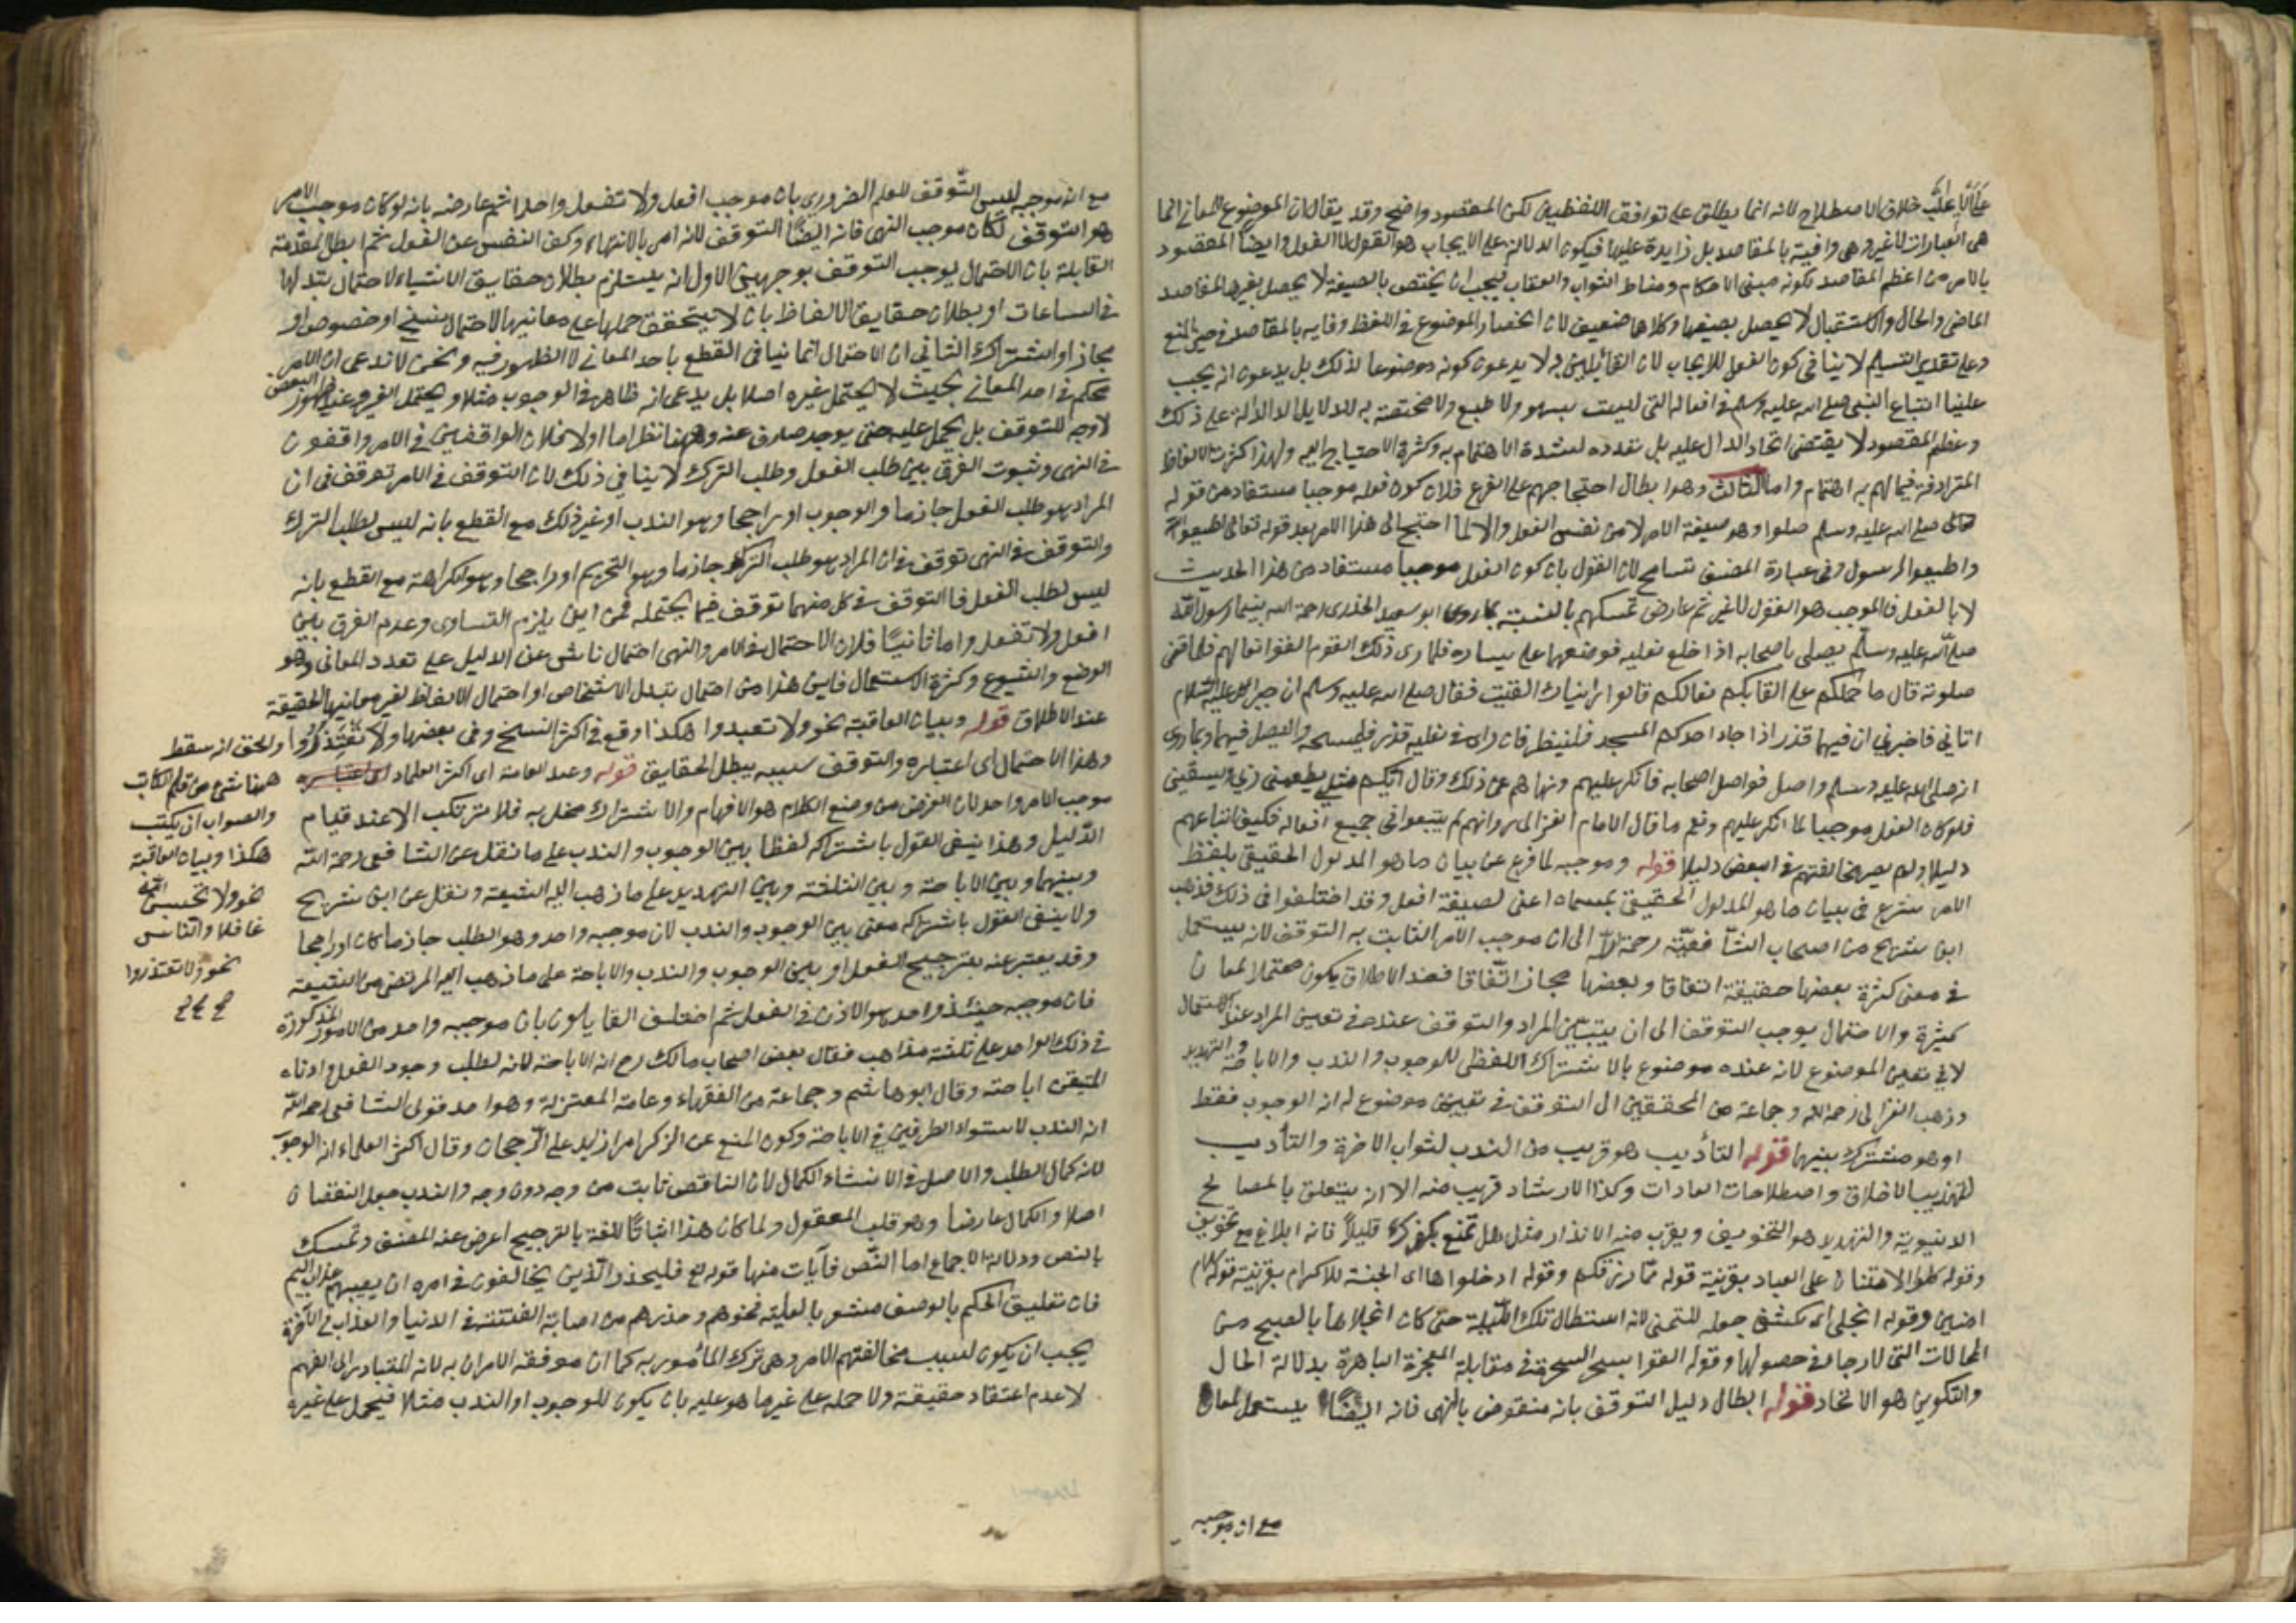 خلاف الاصطلاح لانه انما يطلق على توافق اللفظين لكن المقصود واضح وقد يقال ان الموضوع للمعاني انما
هي العبارات لا غير وهي وافية بالمقاصد بل زايدة عليها فيكون الدلالة على الايجاب هو القول لا الفعل وايضا المقصود
بالامر من اعظم المقاصد لكونه مبنى الاحكام ومناط الثواب والعقاب فيجب ان يختص بالصيغة لا يحصل بغيرها كمقاصد
الماضي والحال والاستقبال لا يحصل بصيغها وكلاهما ضعيف لان انحصار الموضوع في اللفظ وفايه بالمقاصد في حيز المنع
وعلى تقدير التسليم لا ينافي كون الفعل للايجاب لان القائلين به لا يدعون كونه موضوعا لذلك بل يدعون انه يجب
علينا اتباع النبي صلى الله عليه وسلم في افعاله التي ليست بسهو ولا طبع ولا مختصة به للدلايل الدالة على ذلك
وعظم المقصود لا يقتضي اتحاد الدال عليه بل تعدده لشدة الاهتمام به وكثرة الاحتياج اليه ولهذا كثرت الالفاظ
المترادفة فيما لهم به اهتمام واما الثالث وهو ابطال احتجاجهم على الفرع فلان كون فعله موجبا مستفاد من قوله
صلى الله عليه وسلم صلوا وهو صيغة الامر لا من نفس الفعل والا لما احتيج الى هذا الامر بعد قوله تعالى اطيعوا الله
واطيعوا الرسول وفي عبارة المصنف تسامح لان القول بان كون الفعل موجبا مستفاد من هذا الحديث
لا بالفعل فالموجب هو القول لا غير ثم عارض تمسكهم بالسنة بما روى ابو سعيد الخدري رحمة الله بينما رسول الله
صلى الله عليه وسلم يصلي باصحابه اذا خلع نعليه فوضعهما على يساره فلما رى ذلك القوم القوا نعالهم فلما قضى
صلوته قال ما حملكم على القائكم نعالكم قالوا رايناك القيت فقال صلى الله عليه وسلم ان جبرائل عليه السلام
اتاني فاخبرني ان فيهما قذر اذا جاء احدكم المسجد فلينظر فان راى في نعليه قذر فليمسحه وليصل فيهما وبما روى
انه صلى الله عليه وسلم واصل فواصل اصحابه فانكر عليهم ونهاهم عن ذلك وقال ايكم مثلي يطعمني ربي ويسقيني
فلو كان الفعل موجبا لما انكر عليهم ونعم ما قال الامام الغزالي وانهم لم يتبعوا في جميع افعاله فكيف اتباعهم
دليلا ولم يصر مخالفتهم في البعض دليلا قوله وموجبه لما فرغ عن بيان ما هو المدلول الحقيقي بلفظ
الامر شرع في بيان ما هو المدلول الحقيقي بمسماه اعني لصيغة افعل وقد اختلفوا في ذلك فذهب
ابن شريح من اصحاب الشافعية رحمة الله الى ان موجب الامر الثابت به التوقف لانه يستعمل
في معن كثيرة بعضها حقيقة اتفاقا وبعضها مجاز اتفاقا فعند الاطلاق يكون محتملا لمعان
كثيرة والاحتمال يوجب التوقف الى ان يتبين المراد والتوقف عنده في تعيين المراد عند الاستعمال
لا في تعيين الموضوع لانه عنده موضوع بالاشتراك اللفظي للوجوب والندب والاباحة والتهديد
وذهب الغزالي رحمه الله وجماعة من المحققين الى التوقف في تعيين موضوع له انه الوجوب فقط
او هو مشترك بينهما قوله التأديب هو قريب من الندب لثواب الاخرة والتأديب
لتهذيب الاخلاق واصطلاحات العادات وكذا الارشاد قريب منه الا انه يتعلق بالمصالح
الدنيوية والتهديد هو التخويف ويقرب منه الانذار مثل قل تمتع بكفرك قليلا فانه ابلاغ مع تخويف
وقوله كلوا للامتنان على العباد بقرينة قوله مما رزقكم وقوله ادخلوها اى الجنة للاكرام بقرينة قوله بسلام
امنين وقوله انجلى اى تكشف جعله للتمني لانه استطال تلك الليلة حتى كان انجلاءها بالصبح من
المحالات التي لا رجاء في حصولها وقوله القوا بسحر السحرة في مقابلة المعجزة الباهرة بدلالة الحال
والتكوين هو الايجاد قوله ابطال دليل التوقف بانه منقوض بالنهى فانه ايضا يستعمل لمعان
مع ان موجبه
مع ان موجبه ليس التوقف للعلم الضروري بان موجب افعل ولا تفعل واحدا ثم عارضه بانه لو كان موجب الامر
هو التوقف لكان موجب النهي فانه ايضا التوقف لانه امر بالانتهاء وكف النفس عن الفعل ثم ابطل المقدمة
القابلة بان الاحتمال يوجب التوقف بوجهين الاول انه يستلزم بطلان حقايق الاشياء لاحتمال تبدلها
في الساعات او بطلان حقايق الالفاظ بان لا يتحقق حملها على معانيها لاحتمال نسخ او خصوص او
مجاز او اشتراك الثاني ان الاحتمال انما ينافي القطع باحد المعاني لا الظهور فيه ونحن لا ندعى ان الامر
محكم في احد المعاني بحيث لا يحتمل غيره اصلا بل يدعى انه ظاهر في الوجوب مثلا ويحتمل الغير وعند ظهور البعض
لا وجه للتوقف بل يحمل عليه حتى يوجد صارف عنه وههنا نظر اما اولا فلان الواقفين في الامر واقفون
في النهى وثبوت الفرق بين طلب الفعل وطلب الترك لا ينافي ذلك لان التوقف في الامر توقف في ان
المراد هو طلب الفعل جازما والوجوب او راجحا وهو الندب او غير ذلك مع القطع بانه ليس لطلب الترك
والتوقف في النهى توقف في ان المراد هو طلب الترك جازما وهو التحريم او راجحا وهو الكراهة مع القطع بانه
ليس لطلب الفعل فالتوقف في كل منهما توقف فيما يحتمله فمن اين يلزم التساوى وعدم الفرق بين
افعل ولا تفعل واما ثانيا فلان الاحتمال في الامر والنهى احتمال ناشئ عن الدليل على تعدد المعاني وهو
الوضع والشيوع وكثرة الاستعمال فاين هذا من احتمال تبدل الاشخاص او احتمال الالفاظ لغير معانيها الحقيقة
عند الاطلاق قوله وبيان العاقبة نحو ولا تعبدوا هكذا وقع في اكثر النسخ وفي بعضها ولا تعتذروا والحق انه سقط
ههنا شئ من قلم الكاتب
والصواب ان يكتب
هكذا وبيان العاقبة
نحو ولا تحسبن الله
غافلا والناس
نحو ولا تعتذروا
وهذا الاحتمال اى اعتباره والتوقف بسببه يبطل الحقايق قوله وعند العامة اى اكثر العلماء
موجب الامر واحد لان الغرض من وضع الكلام هو الافهام والاشتراك مخل به فلا يرتكب الا عند قيام
الدليل وهذا ينفى القول باشتراكه لفظا بين الوجوب والندب على ما نقل عن الشافعى رحمة الله
وبينهما وبين الاباحة وبين الثلثة وبين التهديد على ما ذهب اليه الشيعة ونقل عن ابن شريح
ولا ينفى القول باشتراكه معنى بين الوجوب والندب لان موجبه واحد وهو الطلب جازما كان او راجحا
وقد يعبر عنه بترجيح الفعل او بين الوجوب والندب والاباحة على ما ذهب اليه المرتضى من الشيعة
فان موجبه حينئذ واحد هو الاذن في الفعل ثم اختلف القايلون بان موجبه واحد من الامور المذكورة
في ذلك الواحد على ثلثة مذاهب فقال بعض اصحاب مالك رح انه الاباحة لانه لطلب وجود الفعل وادناه
المتيقن اباحته وقال ابو هاشم وجماعة من الفقهاء وعامة المعتزلة وهو احد قولى الشافعى رحمه الله
انه الندب لاستواء الطرفين في الاباحة وكون المنع عن الترك امر زايد على الرجحان وقال اكثر العلماء انه الوجوب
لانه كمال الطلب والاصل في الاشياء الكمال لان الناقص ثابت من وجه دون وجه والندب جعل النقصان
اصلا والكمال عارضا وهو قلب المعقول ولما كان هذا اثباتا للغة بالترجيح اعرض عنه المصنف وتمسك
بالنص ودلالة الاجماع اما النص فآيات منها قوله تع فليحذر الذين يخالفون في امره ان يصيبهم عذاب اليم
فان تعليق الحكم بالوصف مشعر بالعلية فخوفهم وحذرهم من اصابة الفتنة في الدنيا والعذاب في الآخرة
يجب ان يكون لسبب مخالفتهم الامر وهى ترك المأمور به كما ان موافقة الامر ان به لانه المتبادر الى الفهم
لا عدم اعتقاد حقيقة ولا حمله على غير ما هو عليه بان يكون للوجوب او الندب مثلا فيحمل على غيره